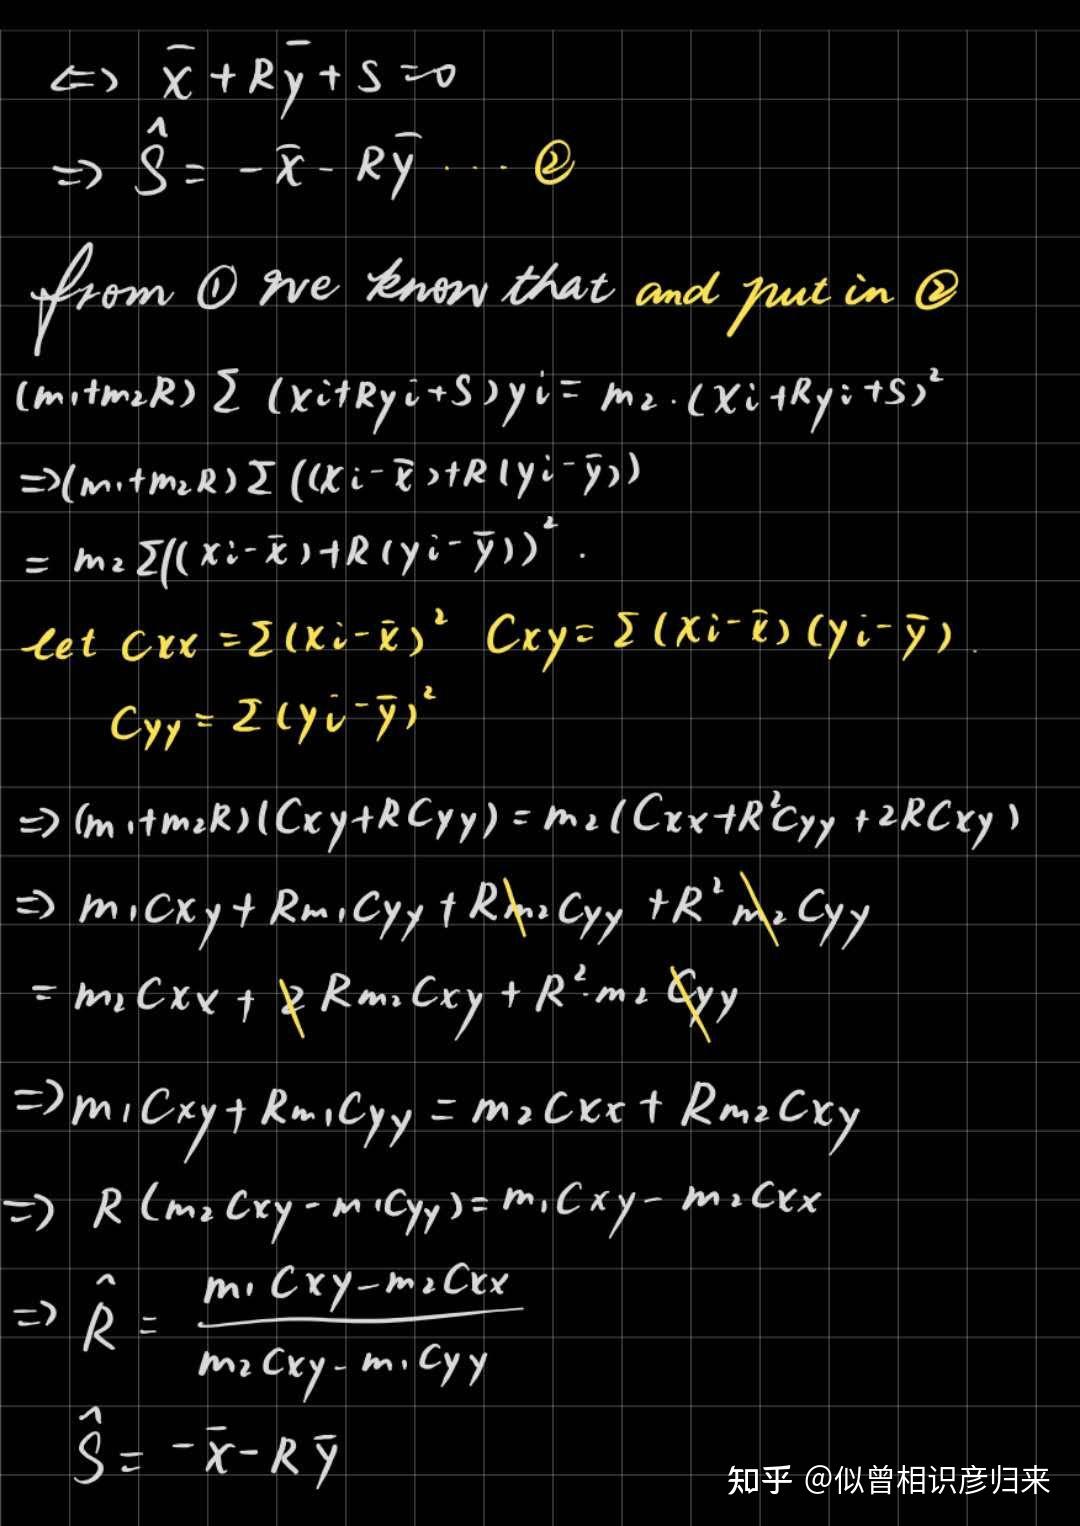 ⇔ x̄ + Rȳ + S = 0
⇒ Ŝ = -x̄ - Rȳ ··· ②
from ① we know that and put in ②
(m₁+m₂R) Σ (xi+Ryi+S) yi = m₂·(xi+Ryi+S)²
⇒(m₁+m₂R) Σ ((xi-x̄)+R(yi-ȳ))
= m₂ Σ((xi-x̄)+R(yi-ȳ))² .
let Cxx = Σ(xi-x̄)² Cxy = Σ(xi-x̄)(yi-ȳ).
Cyy = Σ(yi-ȳ)²
⇒(m₁+m₂R)(Cxy+RCyy) = m₂(Cxx+R²Cyy+2RCxy)
⇒ m₁Cxy + Rm₁Cyy + Rm₂Cyy + R²m₂Cyy
= m₂Cxx + 2Rm₂Cxy + R²·m₂Cyy
⇒ m₁Cxy + Rm₁Cyy = m₂Cxx + Rm₂Cxy
⇒ R(m₂Cxy - m₁Cyy) = m₁Cxy - m₂Cxx
⇒ R̂ = m₁Cxy-m₂Cxx / m₂Cxy-m₁Cyy
Ŝ = -x̄ - Rȳ
知乎 @似曾相识彦归来